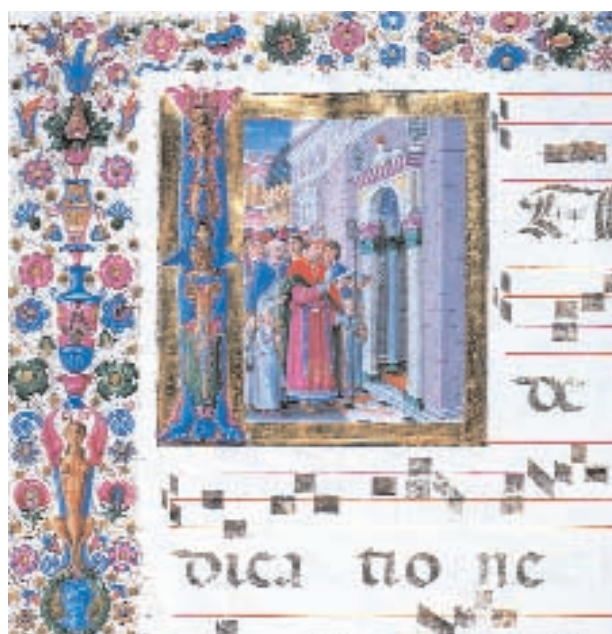 de
dica tio ne